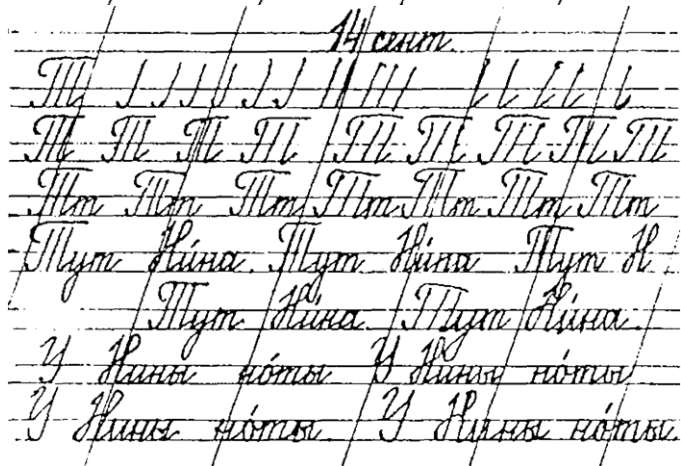 14 сент.
Т
Т Т Т Т Т Т Т Т Т
Тт Тт Тт Тт Тт Тт Тт
Тут Ни́на. Тут Ни́на Тут Н
Тут Ни́на. Тут Ни́на.
У Нины но́ты У Нины но́ты
У Нины но́ты. У Нины но́ты.